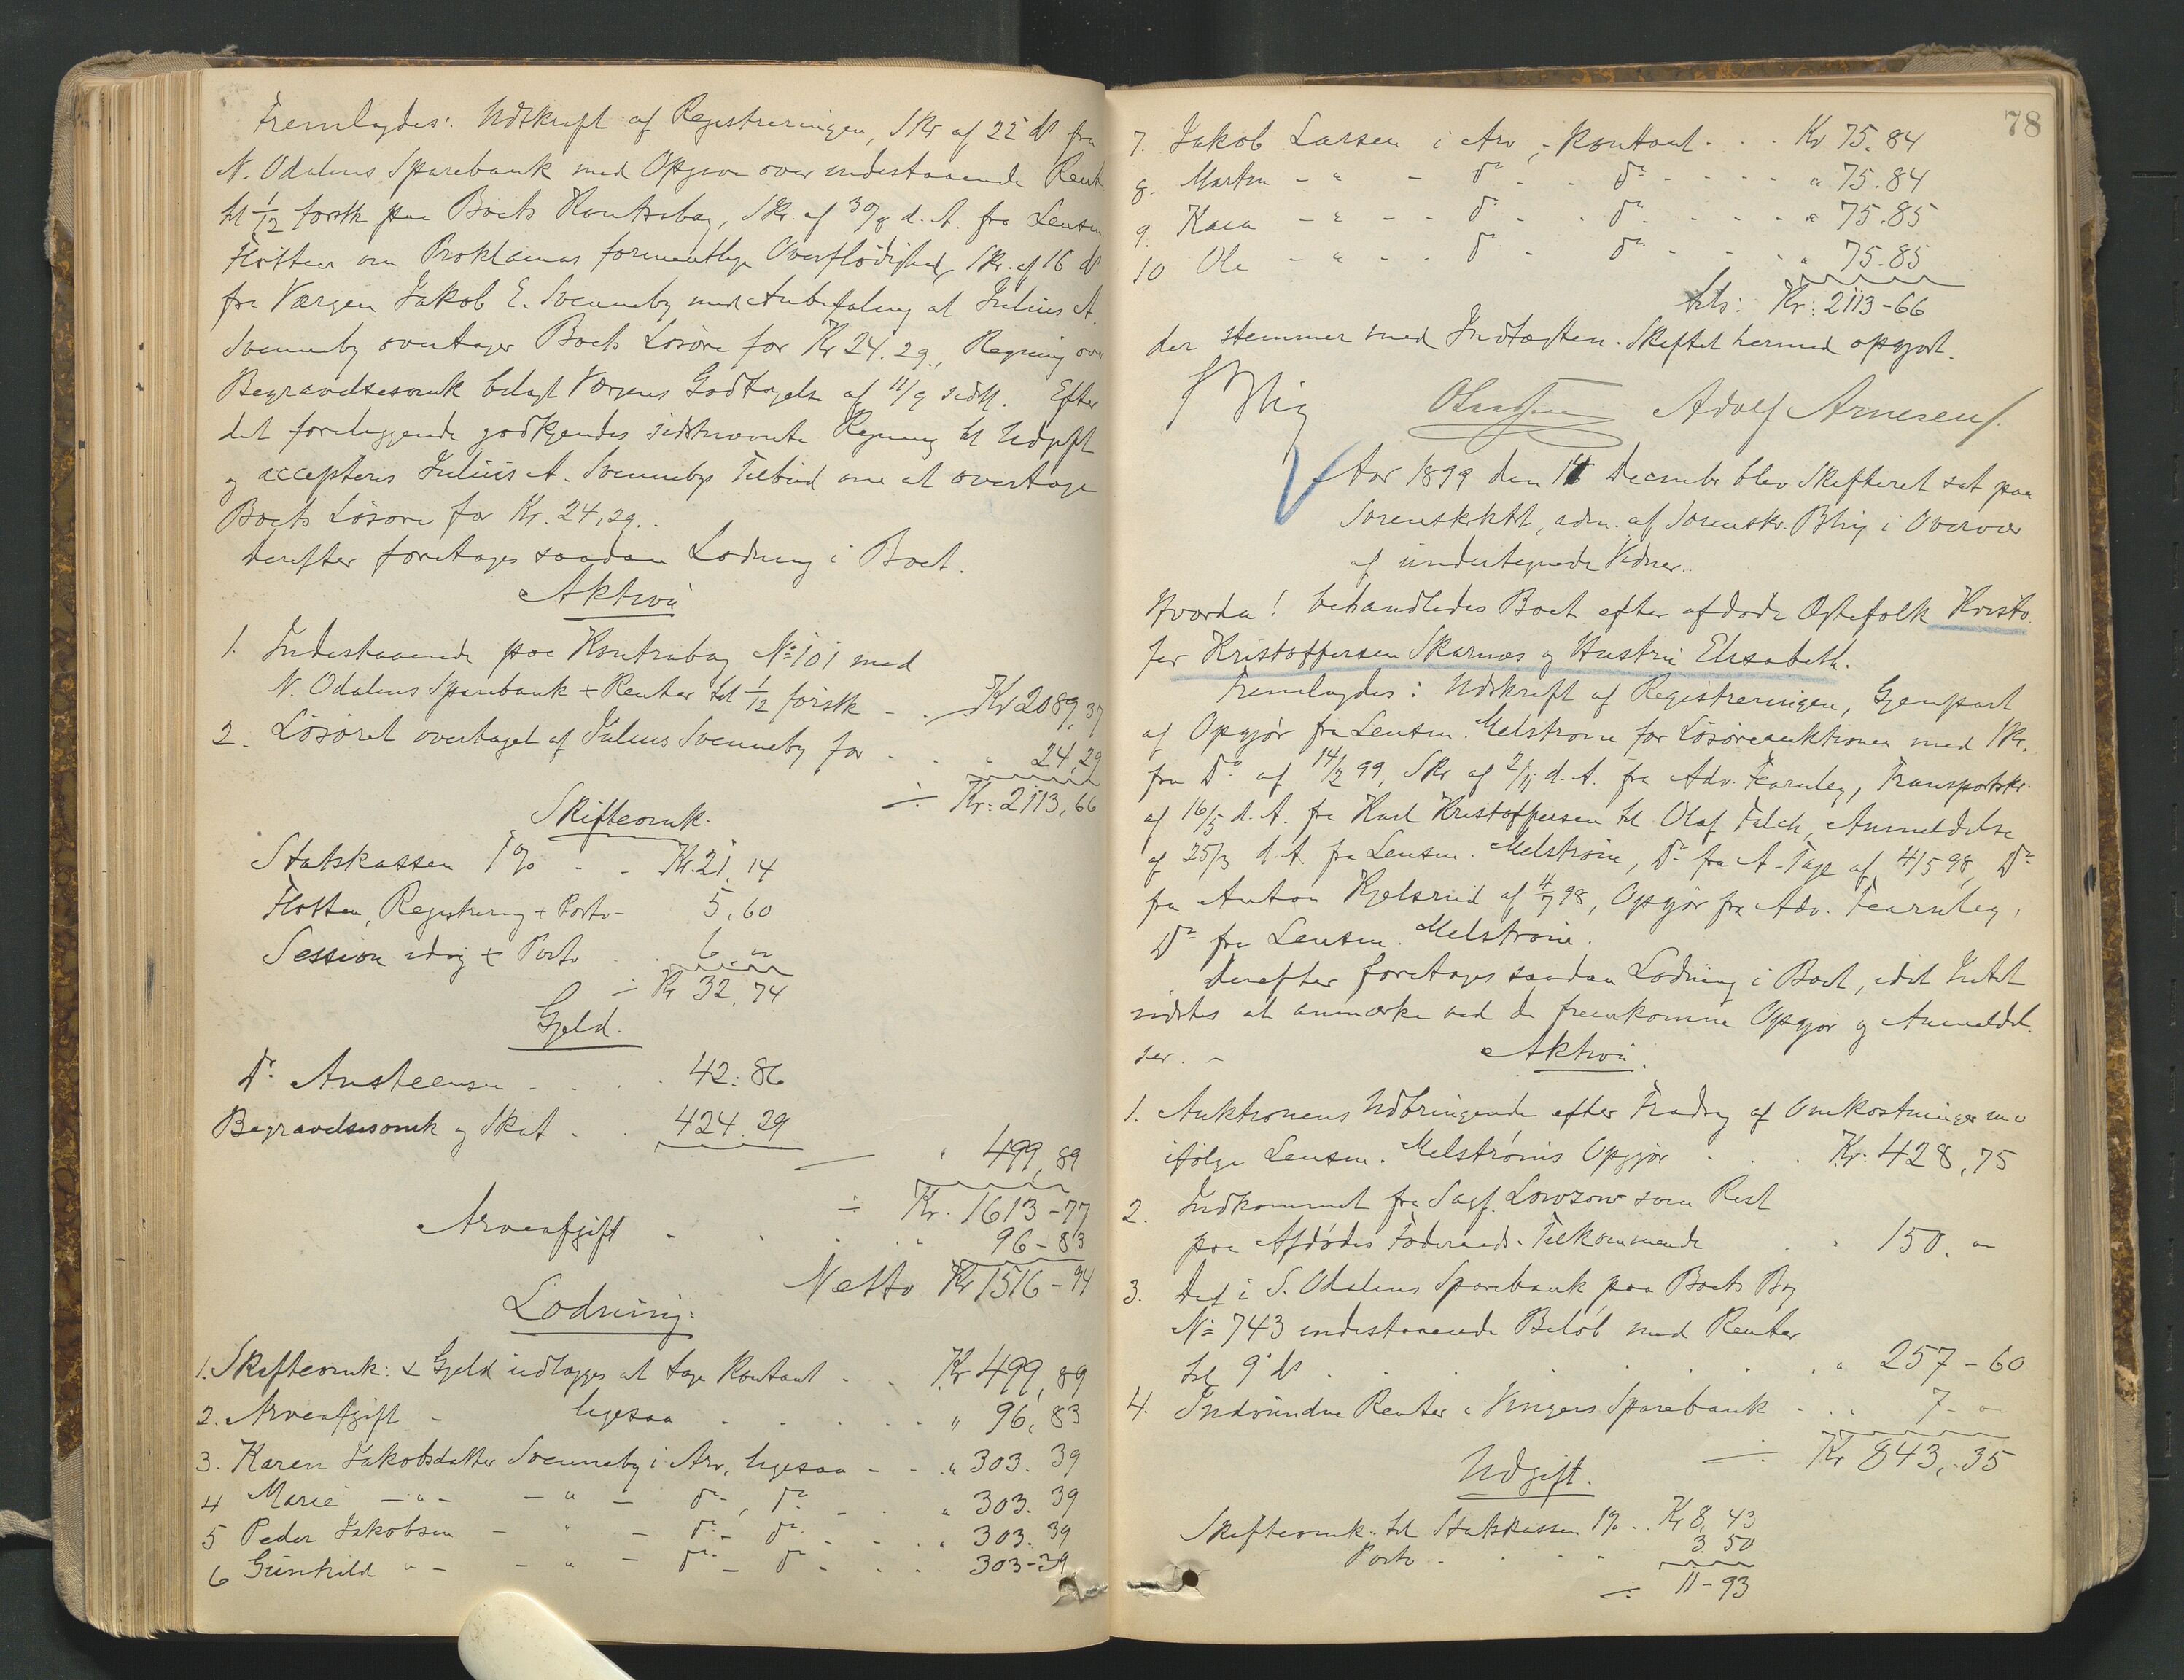 Fremlagdes: Udskrift af Registreringen, Skr af 22 ds fra
N. Odalens Sparebank med Opgave over indestaaende Rent.
til 1/12 førstk paa Boets Kontrabog, Skr. af 30/8 d. A. fra Lensm
Fløtten om Proklamas formentlige Overflødighed, Skr. af 16 ds
fra Værgen Jakob E. Svenneby med Anbefaling at Julius A.
Svenneby overtager Boets Løsøre for Kr 24.29., Regning over
Begravelsesomk belagt Værgens Godtagelse af 11/9 sidstl. Efter
det foreliggende godkjendes sidstnævnte Regning til Udgift
og accepteres Julius A. Svennebys Tilbud om at overtage
Boets Løsøre for Kr. 24,29..
Derefter foretages saadan Lodning i Boet.
Aktiva
1. Indestaaende paa Kontrabog No 101 med
N. Odalens Sparebank + Renter til 1/12 førstk - . Kr 2089,37
2. Løsøret overtaget af Julius Svenneby for . . " 24,29
÷ Kr: 2113,66
Skifteomk.
Statskassen 1% . . Kr. 21,14
Fløtten, Registrering + Porto - 5,60
Session idag + Porto . . 6 "
÷ Kr 32.74
Gjeld.
Dr. Ansteensen . . . . 42:86
Begravelsesomk og Skat . . 424.29
— " 499,89
÷ Kr. 1613-77
Arveafgift . . . . 96-83
Netto Kr 1516-94
Lodning:
1. Skifteomk: & Gjeld udlægges at tage Kontant . . Kr 499,89
2. Arveafgift - ligesaa . . . . . " 96,83
3. Karen Jakobsdatter Svenneby i Arv, ligesaa - - " 303.39
4 Marie - " - - " - do, do - . " 303.39
5 Peder Jakobsen - " - do - do . . " 303.39
6 Gunhild " - - " - do - do - . . 303-39
78
7. Jakob Larsen i Arv, - kontant . . . Kr 75.84
8. Martin - " - do . . do . . . . " 75.84
9. Kaia - " - - do - . do . . . . " 75.85
10 Ole - " - . do - do . . . . " 75.85
tils: Kr: 2113-66
der stemmer med Indtægten. Skiftet hermed opgjort.
Blig Adolf Arnesen
Aar 1899 den 11 December blev Skifteret sat paa
Sorenskrktt, adm. af Sorenskr. Blig i Overvær
af undertegnede Vidner..
Hvorda! behandledes Boet efter afdøde Ægtefolk Kristo-
fer Kristoffersen Skarnes og Hustru Elisabeth.
Fremlagdes: Udskrift af Registreringen, Gjenpart
af Opgjør fra Lensm. Melstrøm for Løsøreauktionen med Skr.
fra Do af 14/2 99, Skr af 2/11 d. A. fra Adv. Fearnley, Transportskr.
af 16/5 d. A. fra Karl Kristoffersen til Olaf Falch, Anmeldelse
af 25/3 d. A. fra Lensm. Melstrøm, Do fra A. Tage af 4/5 98, Do
fra Anton Kjelsrud af 4/7 98, Opgjør fra Adv. Fearnley,
Do fra Lensm. Melstrøm.
Derefter foretages saadan Lodning i Boet, idet Intet
vidstes at anmærke ved de fremkomne Opgjør og Anmeldel-
ser. -
Aktiva.
1. Auktionens Udbringende efter Fradrag af Omkostninger m v
ifølge Lensm. Melstrøms Opgjør . . . Kr. 428,75
2. Indkommet fra Sagf. Lowzow som Rest
paa Afdødes Føderaads-Tilkommende . " 150. "
3. Det i S. Odalens Sparebank paa Boets Bog
No 743 indestaaende Beløb med Renter
til 9 ds . . . . . . . . " 257-60
4. Indvundne Renter i Vingers Sparebank . . . 7- "
÷ Kr 843,.35
Udgift.
Skifteomk. til Statskassen 1% . . Kr 8,43
Porto . . . . 3.50
÷ 11-93